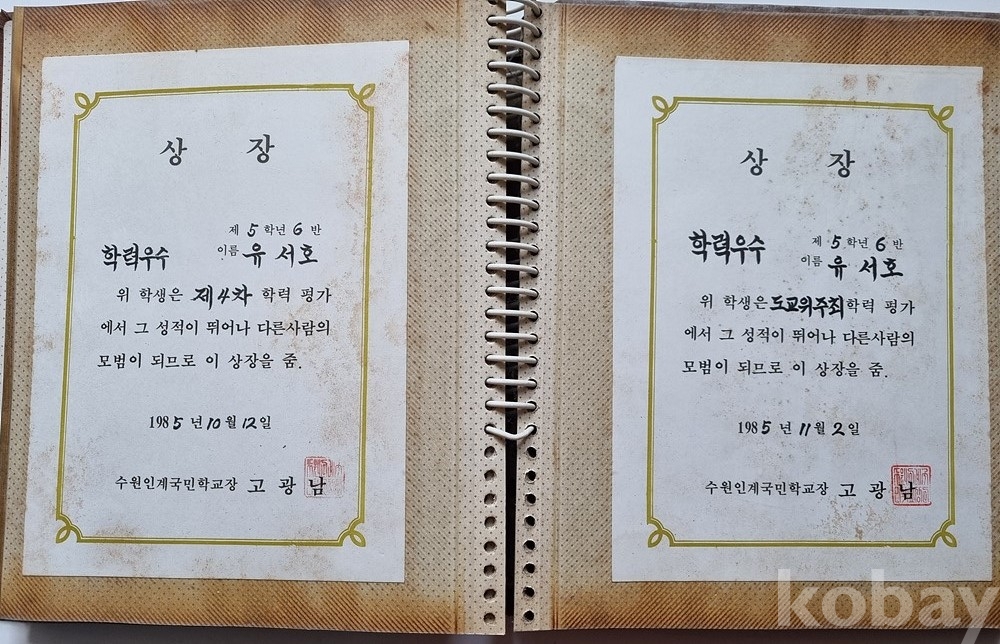 상 장
제 5 학년 6 반
학력우수
이름 유 서호
위 학생은 제4차 학력 평가
에서 그 성적이 뛰어나 다른사람의
모범이 되므로 이 상장을 줌.
1985 년 10 월 12 일
수원인계국민학교장 고 광 남
상 장
제 5 학년 6 반
학력우수
이름 유 서호
위 학생은 도교위주최 학력 평가
에서 그 성적이 뛰어나 다른사람의
모범이 되므로 이 상장을 줌.
1985 년 11 월 2 일
수원인계국민학교장 고 광 남
kobay